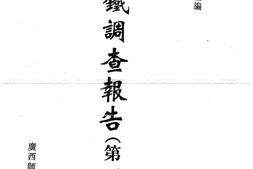 編
鐵調查報告(第
廣西師